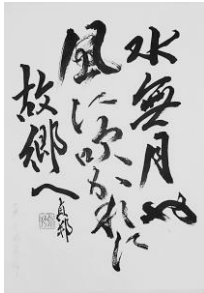 水無月や
風に吹かれに
故郷へ
貞邦